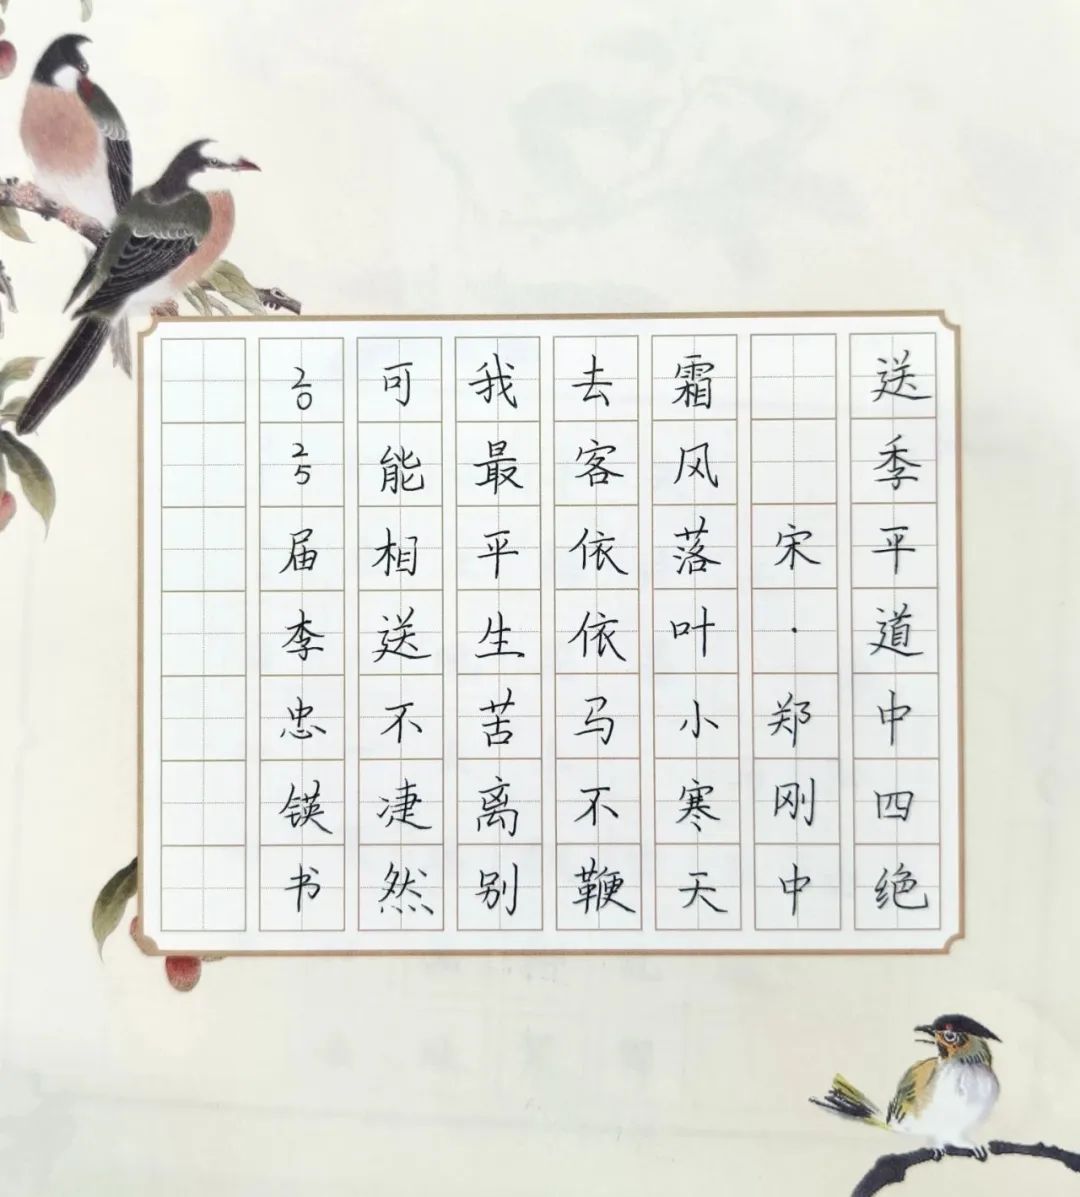 送季平道中四绝
宋·郑刚中
霜风落叶小寒天
去客依依马不鞭
我最平生苦离别
可能相送不凄然
2025届李忠锳书